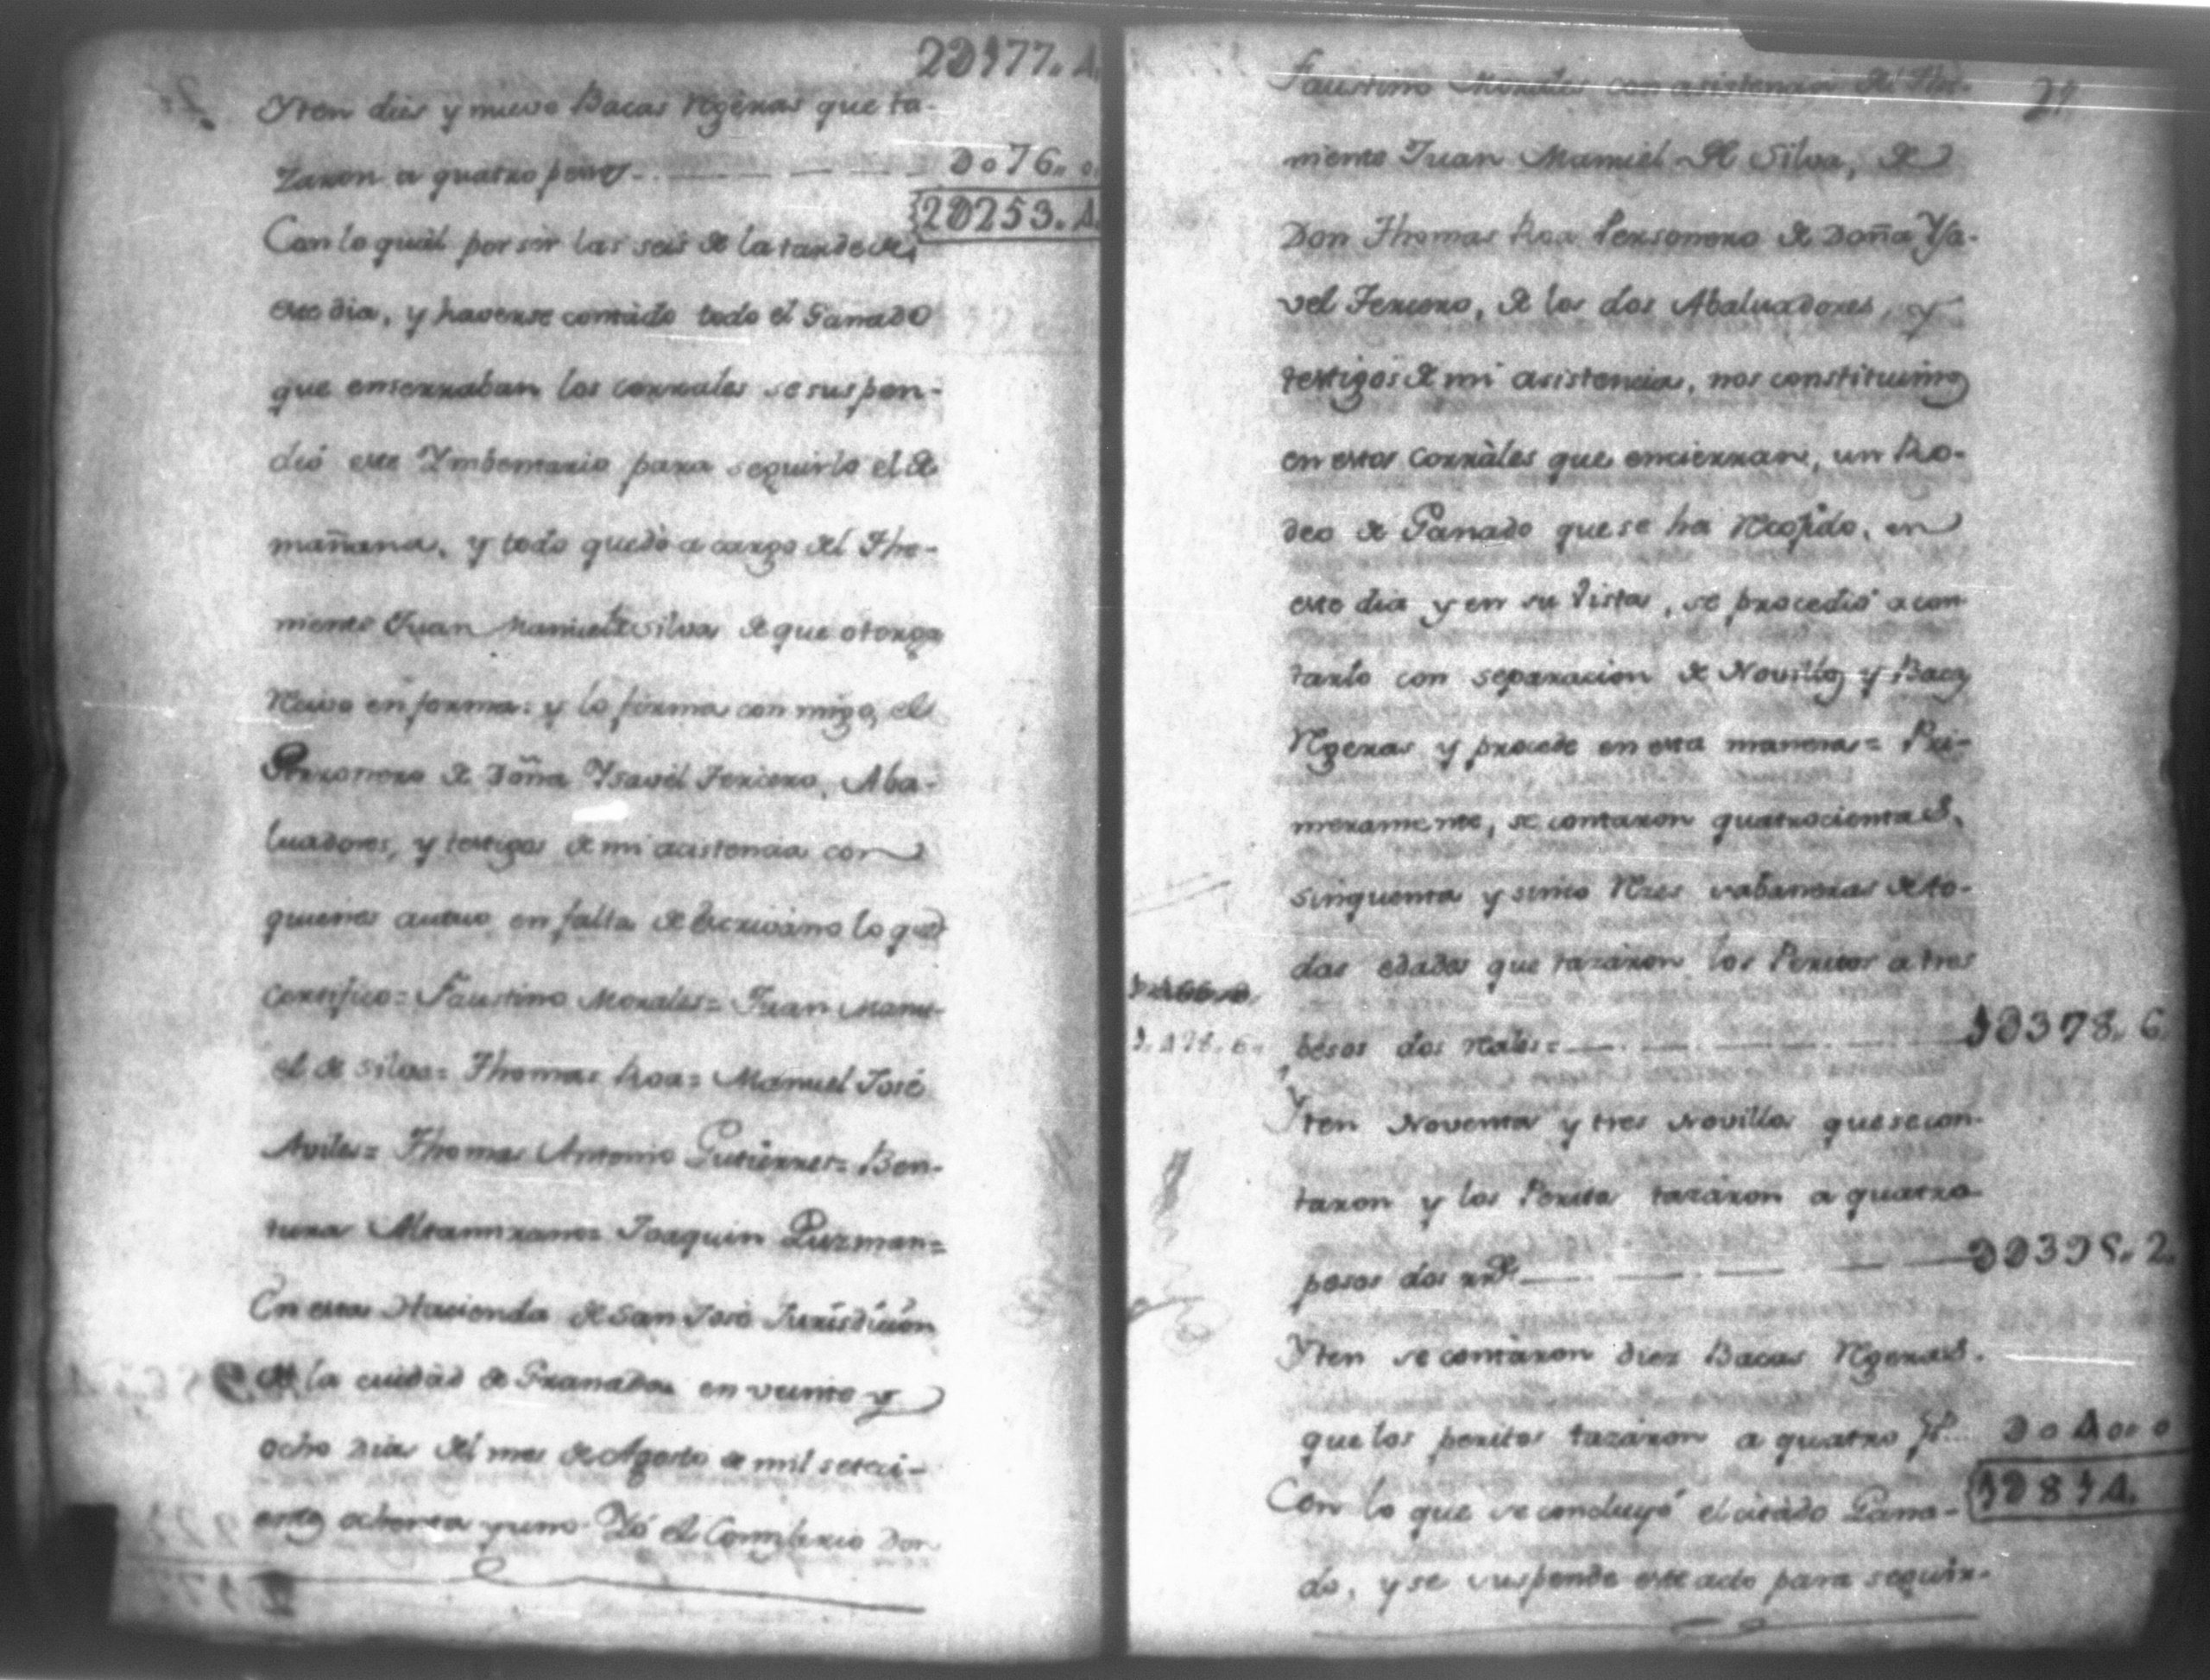 20177. 4.
Yten dies y nueve Bacas Rgeras que ta-
zaron a quatro pesos
0076. 0.
20253. 4.
Con lo quàl por sèr las seis de la tarde de
este dia, y haverse contàdo todo el Ganado
que enserraban los corrales se suspen-
dió este Ymbentario para seguirlo el de
mañana, y todo quedò a cargo del The-
niente Juan Manuel de Silva de que otorga
Recivo en forma: y lo firma con migo, el
Personero de Doña Ysavèl Fercero, Aba-
luadores, y testigos de mi acistencia con
quienes actuo en falta de Escrivano lo que
certifico= Faustino Morales= Juan Manu-
el de Silva= Thomas Roa= Manuel José
Aviles= Thomas Antonio Gutierres= Ben-
tura Altamirano= Joaquin Guzman=
En esta Hacienda de San José Jurisdicion
de la ciudàd de Granada en veinte y
ocho Dias del mes de Agosto de mil seteci-
entos ochenta y uno. Yó el Comisario Don
Faustino Morales con asistencia del The-
niente Juan Manuel de Silva, de
Don Thomas Roa Personero de Doña Ysa-
vel Fercero, de los dos Abaluadores, y
testigos de mi asistencia, nos constituimos
en estos corràles que encierran, un Ro-
deo de Ganado que se ha Recojido, en
este dia y en su vista, se procedió a con
tarlo con separacion de Novillos y Bacas
Rgeras y procede en esta manera= Pri-
meramente, se contaron quatrocientas
sinquenta y sinco Rzes vabaneras de to-
das edades que tazàron los Peritos a tres
pesos dos reales=
10378. 6.
Yten Noventa y tres Novillos que se con-
taron y los Peritos tazàron a quatro
pesos dos rrs.
00395. 2.
Yten se contàron diez Bacas Rgeras.
que los peritos tazàron a quatro ps.
0040. 0
Con lo que se concluyó el citàdo Gana-
10814.
do, y se suspende este acto para seguir-